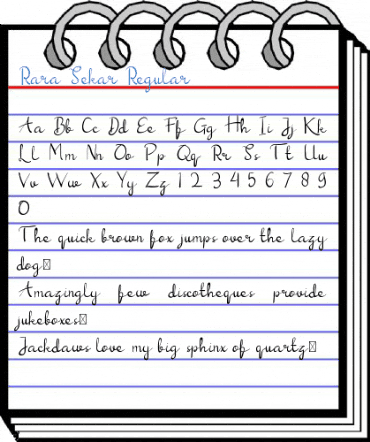 Rara Sekar Regular
Aa Bb Cc Dd Ee Ff Gg Hh Ii Jj Kk
Ll Mm Nn Oo Pp Qq Rr Ss Tt Uu
Vv Ww Xx Yy Zz 1 2 3 4 5 6 7 8 9
0
The quick brown fox jumps over the lazy
dog
Amazingly few discotheques provide
jukeboxes
Jackdaws love my big sphinx of quartz